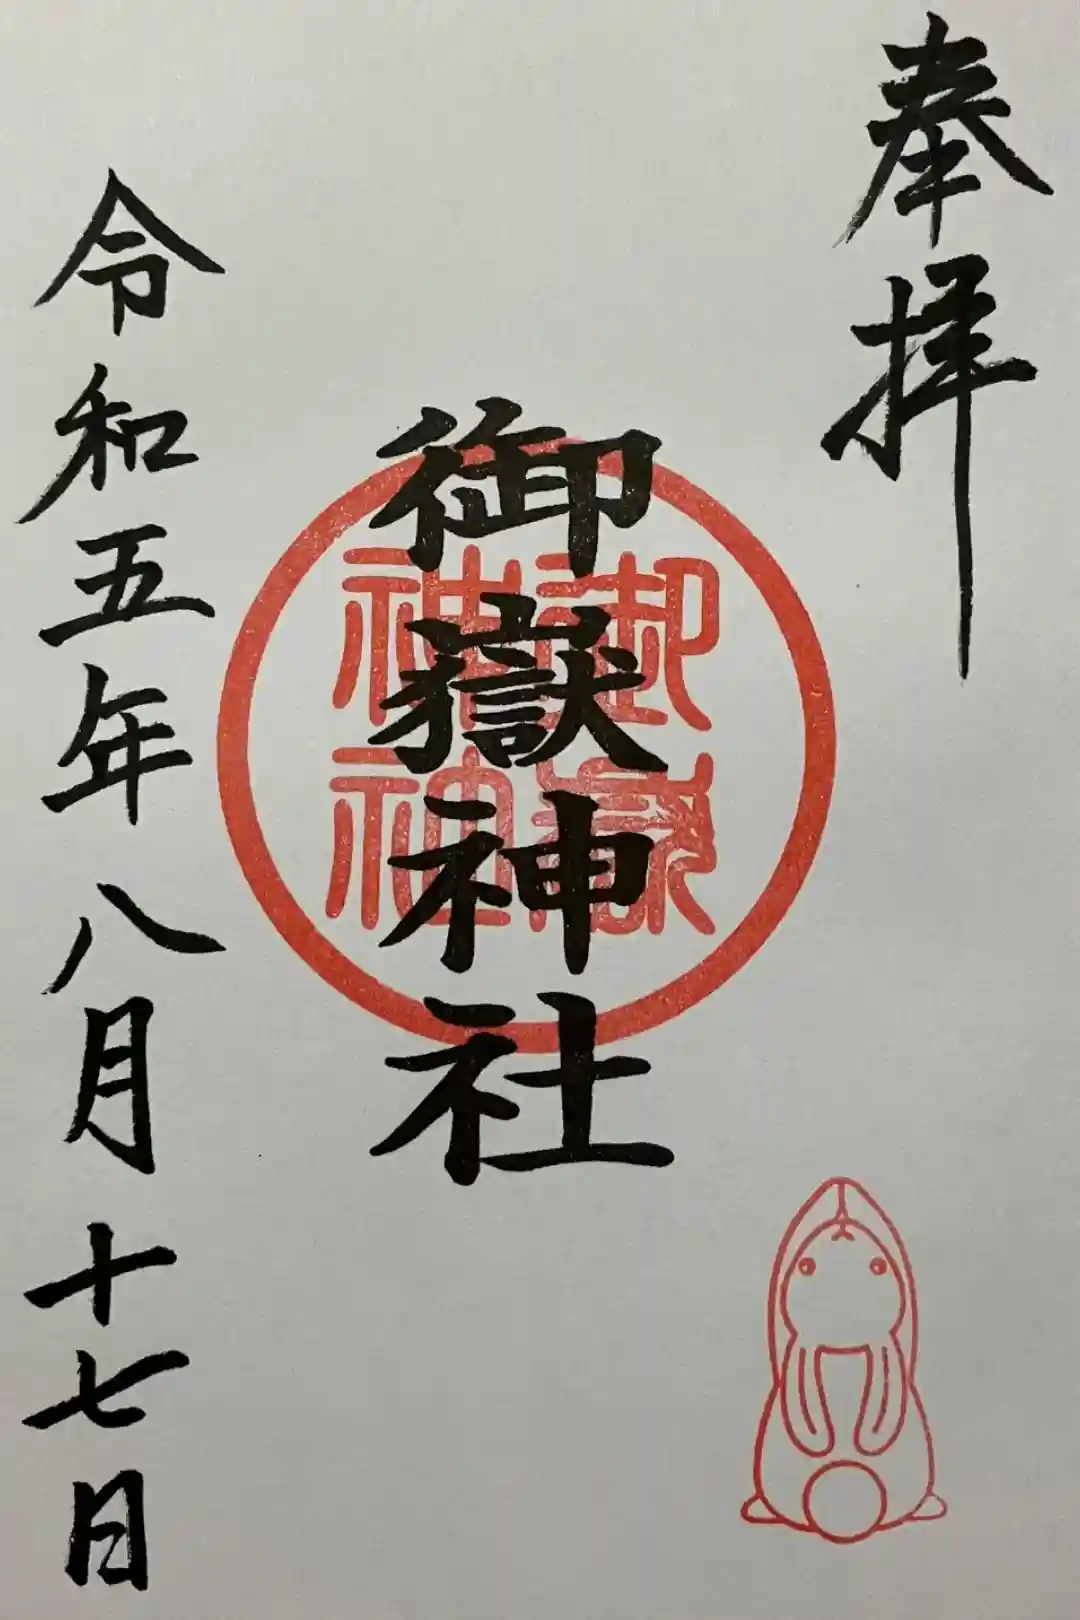 奉拝
御嶽神社
御嶽
神社
令和五年八月十七日